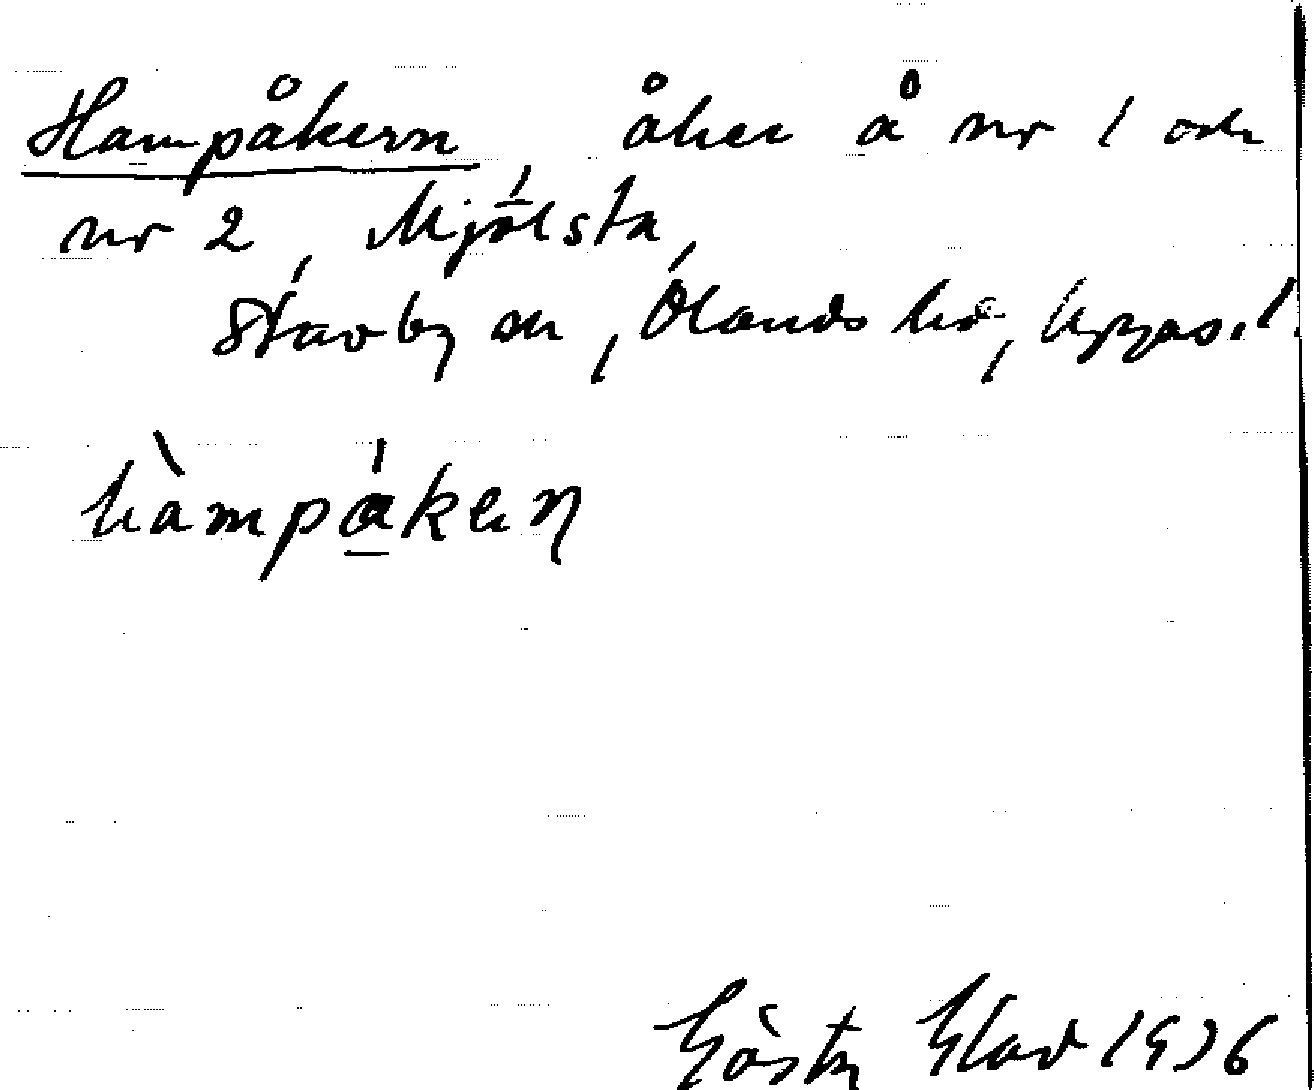 Hampåkern, åker å nr 1 och
nr 2, Mjölsta,
Stavby sn, Olands hd, Uppsa. l.
hàmpákeņ
Gösta Glad 1936